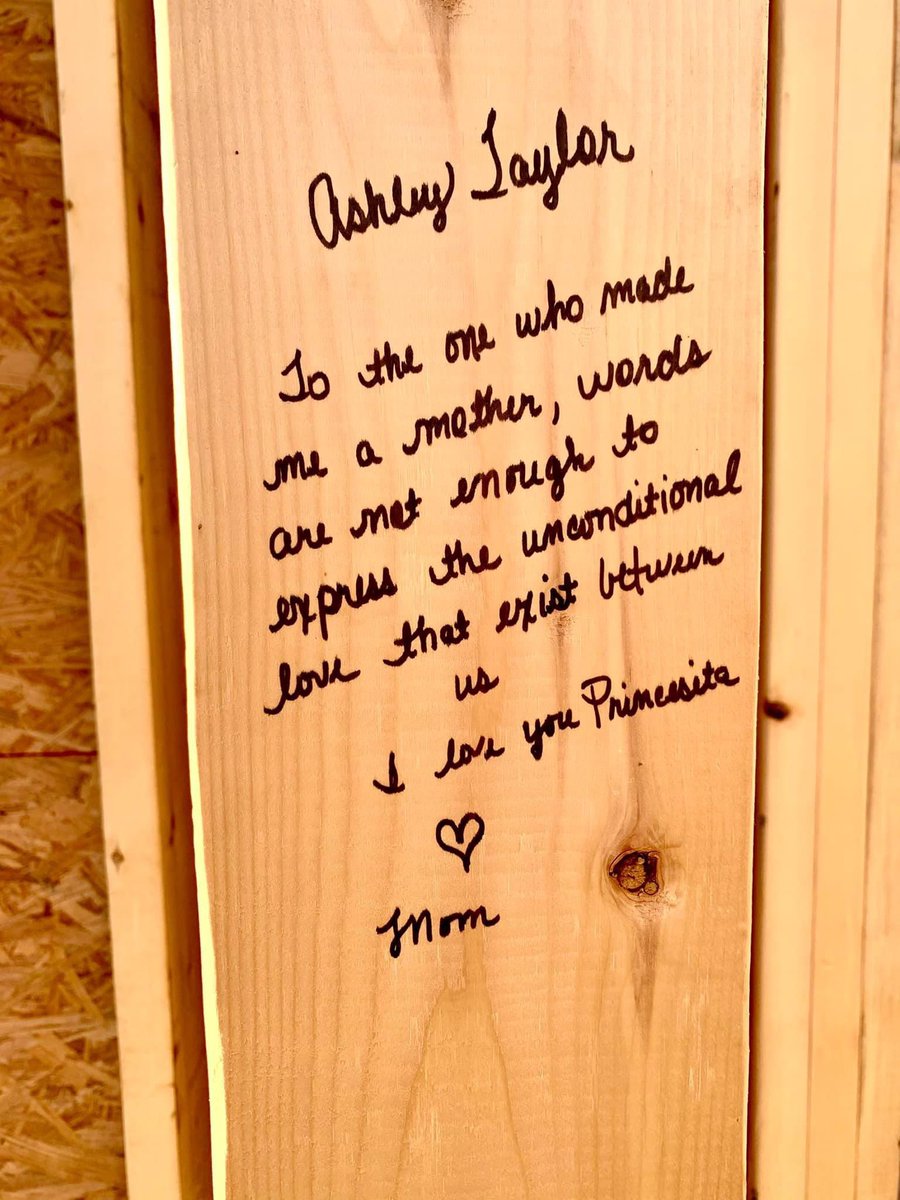 Ashley Taylor
To the one who made
me a mother, words
are not enough to
express the unconditional
love that exist between
us
I love you Princesita
Mom